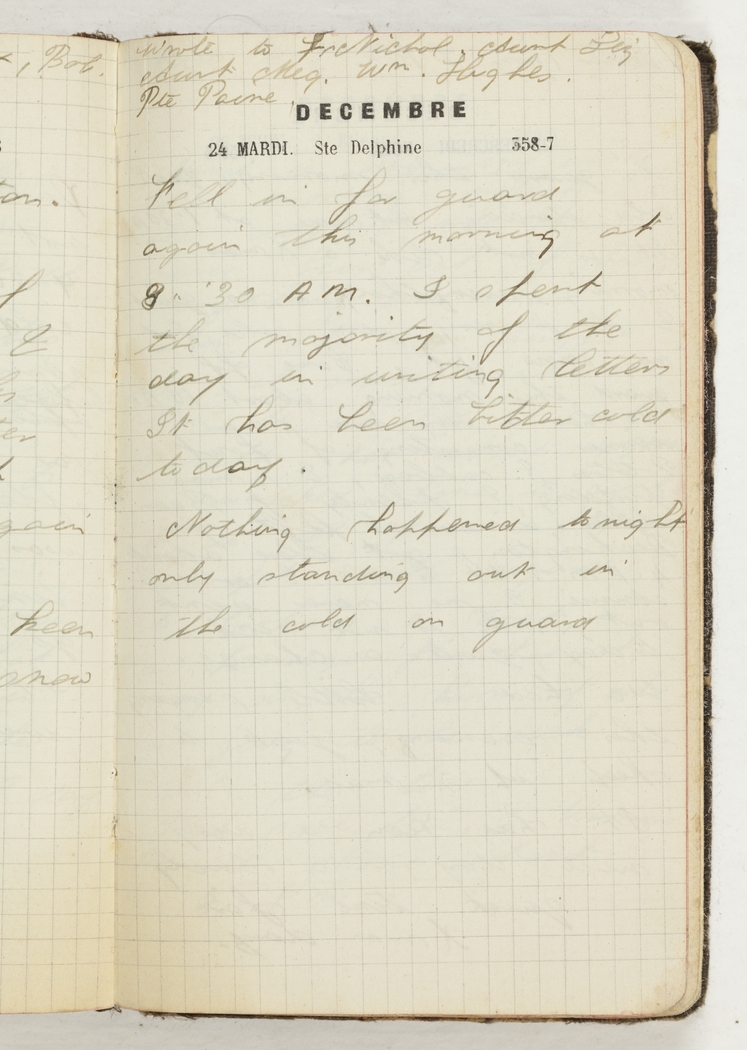 , Bob.
Wrote to F. Nichol, Aunt Liz
Aunt Meg. Wm. Hughes.
Pte Paine
DECEMBRE
24 MARDI. Ste Delphine 358-7
Fell in for guard
again this morning at
8.30 AM. I spent
the majority of the
day in writing letters
It has been bitter cold
today.
Nothing happened tonight
only standing out in
the cold on guard
gain
been
snow